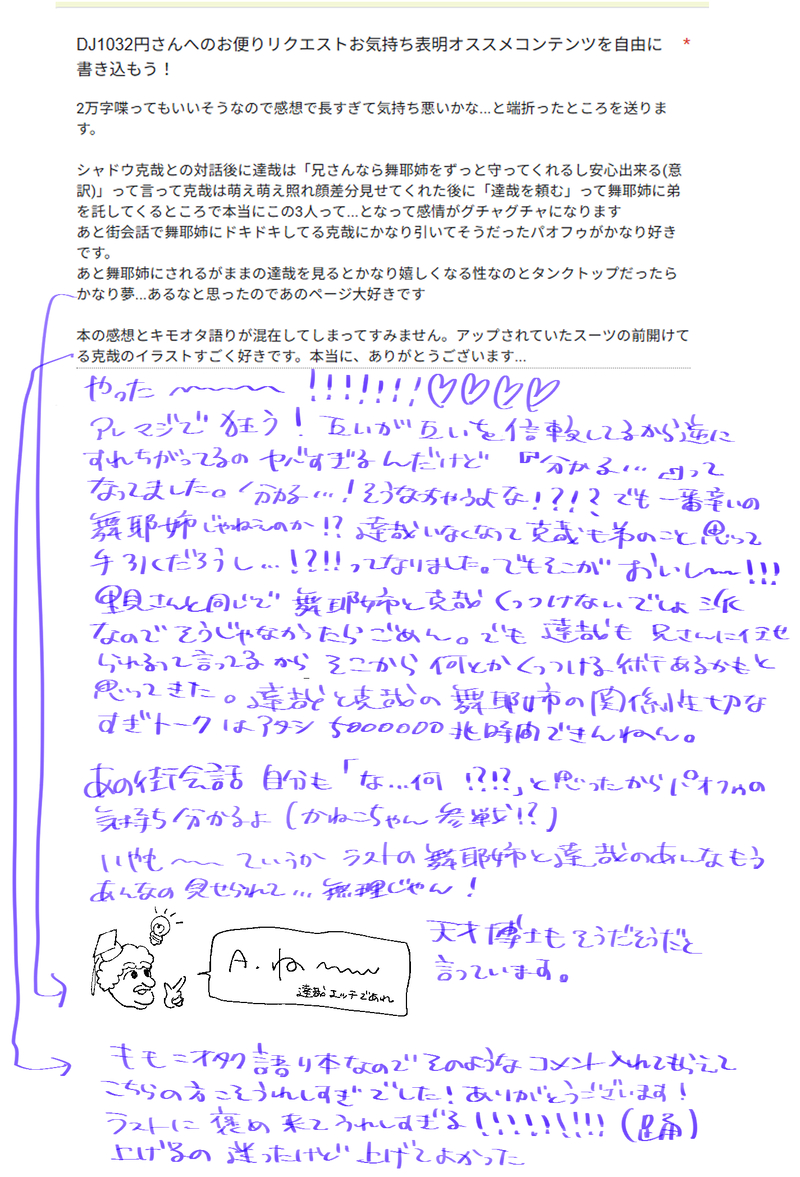 DJ1032円さんへのお便りリクエストお気持ち表明オススメコンテンツを自由に *
書き込もう！
2万字喋ってもいいそうなので感想で長すぎて気持ち悪いかな…と端折ったところを送りま
す。
シャドウ克哉との対話後に達哉は「兄さんなら舞耶姉をずっと守ってくれるし安心出来る(意
訳)」って言って克哉は萌え萌え照れ顔差分見せてくれた後に「達哉を頼む」って舞耶姉に弟
を託してくるところで本当にこの3人って…となって感情がグチャグチャになります
あと街会話で舞耶姉にドキドキしてる克哉にかなり引いてそうだったパオフゥがかなり好き
です。
あと舞耶姉にされるがままの達哉を見るとかなり嬉しくなる性なのとタンクトップだったら
かなり夢…あるなと思ったのであのページ大好きです
本の感想とキモオタ語りが混在してしまってすみません。アップされていたスーツの前開けて
る克哉のイラストすごく好きです。本当に、ありがとうございます…
やった〜〜〜 !!!!!!!♡♡♡♡
アレマジで狂う！ 互いが互いを信頼してるから逆に
すれちがってるの ヤバすぎるんだけど 『分かる…』って
なってました。分かる…！そうなっちゃうよな!?!? でも一番辛いの
舞耶姉じゃねえのか!? 達哉いなくなって克哉も弟のこと思って
手引くだろうし…!?!!ってなりました。でもそこが おいし〜〜!!!
さんと同じで 舞耶姉と克哉 くっつけないでよ派
なので そうじゃなかったらごめん。でも 達哉も 兄さんに任せ
られるって言ってるから そこから 何とかくっつける術あるかもと
思ってきた。達哉と克哉の舞耶姉の関係性切な
すぎトークはアタシ 5000000兆時間できんねん。
あの街会話 自分も「な…何 !?!?」と思ったからパオフゥの
気持ち分かるよ(かねこちゃん参戦!?)
いやも〜〜 ていうか ラストの舞耶姉と達哉のあんなもう
あんなの 見せられて… 無理じゃん！
A. ね〜〜
達哉エッチであれ
天才博士もそうだそうだと
言っています。
キモ＝オタク語り本なのでそのようなコメント入れてもらえて
こちらの方こそうれしすぎでした！ありがとうございます！
ラストに 褒め 来てうれしすぎる !!!!!!!! (踊)
上げるの 迷ったけど 上げてよかった